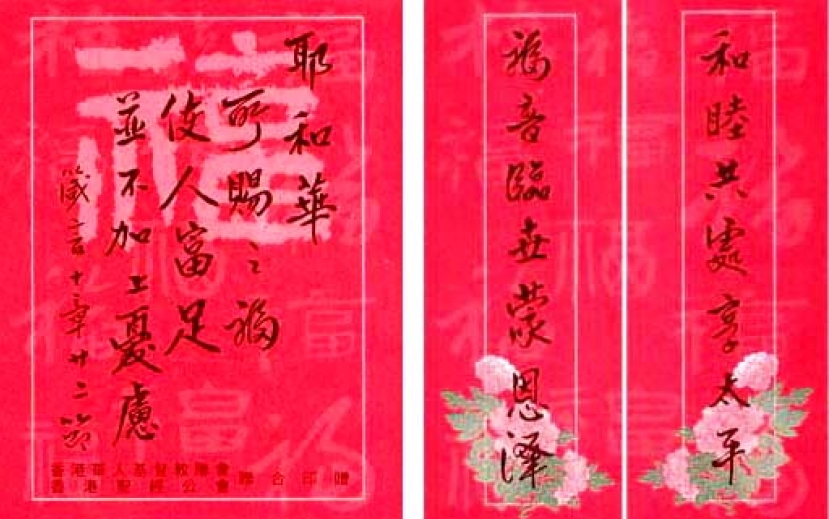 福
耶和華
所賜之福
使人富足
並不加上憂慮
箴言十章廿二節
香港華人基督教聯會
香港聖經公會
聯合印贈
和睦共處享太平
福音臨世蒙恩澤